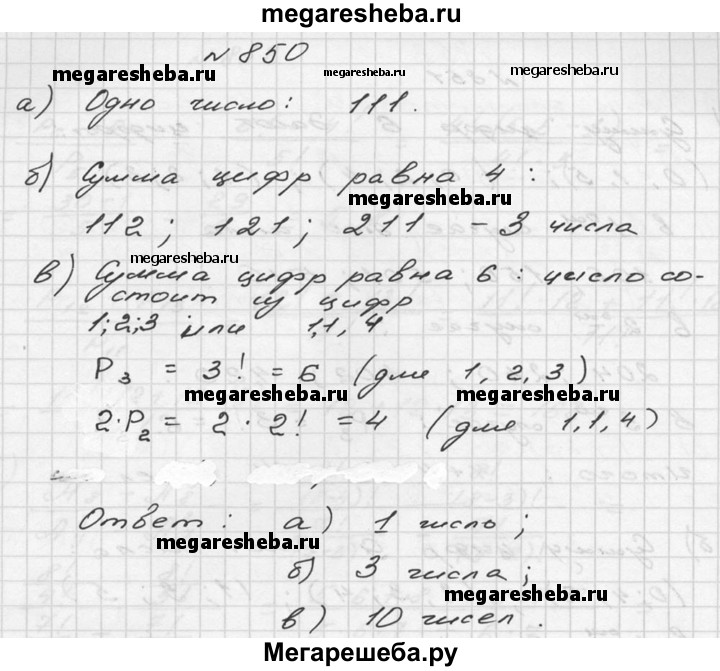 megaresheba.ru
№ 850
megaresheba.ru
megaresheba.ru
megaresheba.ru
а) Одно число: 111.
б) Сумма цифр равна 4:
megaresheba.ru
112; 121; 211 - 3 числа
megaresheba.ru
в) Сумма цифр равна 6: число со-
стоит из цифр
1;2;3 или 1,1,4.
P₃ = 3! = 6 (для 1, 2, 3)
megaresheba.ru
megaresheba.ru
2·P₂ = 2 · 2! = 4 (для 1,1,4)
Ответ: а) 1 число;
megaresheba.ru
б) 3 числа;
megaresheba.ru
в) 10 чисел.
Мегарешеба.ру